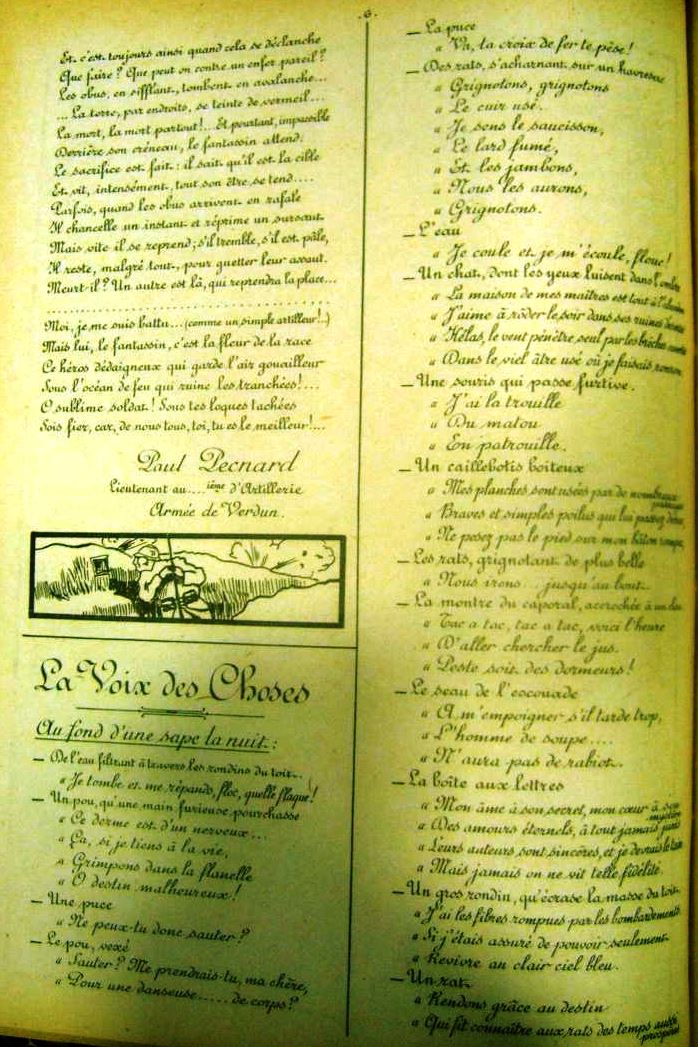 .6.
Et c'est toujours ainsi quand cela se déclanche
Que faire ? Que peut on contre un enfer pareil ?
Les obus, en sifflant, tombent en avalanche...
... La terre, par endroits, se teinte de vermeil...
La mort, la mort partout !.. Et pourtant, impassible
Derrière son créneau, le fantassin attend.
Le sacrifice est fait : il sait qu'il est la cible
Et vit, intensément, tout son être se tend....
Parfois, quand les obus arrivent en rafale
Il chancelle un instant et réprime un sursaut
Mais vite il se reprend ; s'il tremble, s'il est pâle,
Il reste, malgré tout, pour guetter leur assaut.
Meurt-il ? Un autre est là, qui reprendra la place...
Moi, je me suis battu... (comme un simple artilleur !..)
Mais lui, le fantassin, c'est la fleur de la race
Ce héros dédaigneux qui garde l'air gouailleur
Sous l'océan de feu qui ruine les tranchées !...
O sublime soldat ! Sous tes loques tachées
Sois fier, car, de nous tous, toi, tu es le meilleur !...
Paul Pecnard
Lieutenant au....ième d'Artillerie
Armée de Verdun.
La Voix des Choses
Au fond d'une sape la nuit :
— De l'eau filtrant à travers les rondins du toit..
" Je tombe et me répands, floc, quelle flaque !
— Un pou, qu'une main furieuse pourchasse
" Ce derme est d'un nerveux...
" Ça, si je tiens à la vie,
" Grimpons dans la flanelle
" O destin malheureux !
— Une puce
" Ne peux-tu donc sauter ?
— Le pou, vexé
" Sauter ? Me prendrais-tu, ma chère,
" Pour une danseuse...... de corps ?
— La puce
" Va, ta croix de fer te pèse !
— Des rats, s'acharnant sur un havresac
" Grignotons, grignotons
" Le cuir usé..
" Je sens le saucisson,
" Le lard fumé,
" Et les jambons,
" Nous les aurons,
" Grignotons.
— L'eau
" Je coule et je m'écoule, floue !
— Un chat, dont les yeux luisent dans l'ombre
" La maison de mes maîtres est tout à l'
" J'aime à rôder le soir dans ses ruines
" Hélas, le vent pénètre seul par les brèches
" Dans le vieil âtre usé où je faisais ronron.
— Une souris qui passe furtive.
" J'ai la trouille
" Du matou
" En patrouille.
— Un caillebotis boiteux
" Mes planches sont usées par de nombreux
" Braves et simples poilus qui lui passez
" Ne pesez pas le pied sur mon bâton rompu,
— Les rats, grignotant de plus belle
" Nous irons... jusqu'au bout.
— La montre du caporal, accrochée à un clou
" Tac a tac, tac a tac, voici l'heure
" D'aller chercher le jus.
" Peste soit des dormeurs !
— Le seau de l'escouade
" A m'empoigner s'il tarde trop,
" L'homme de soupe....
" N'aura pas de rabiot.
— La boîte aux lettres
" Mon âme à son secret, mon cœur à son mystère
" Des amours éternels, à tout jamais jurés
" Leurs auteurs sont sincères, et je devrais le taire
" Mais jamais on ne vit telle fidélité.
— Un gros rondin, qu'écrase la masse du toit.
" J'ai les fibres rompues par les bombardements
" Si j'étais assuré de pouvoir seulement
" Revivre au clair ciel bleu.
— Un rat.
" Rendons grâce au destin
" Qui fit connaître aux rats des temps aussi prospères